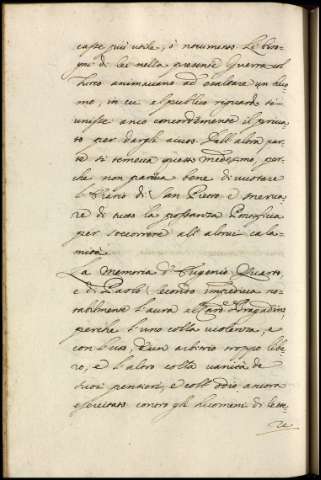 casse più utile, ò nocumento. Le biso=
gni di lei nella presente Guerra col
Turco animavano ad esaltare un huo
mo, in cui el publico riguardo si
unisse anco concordemente il priva=
to per dargli aiuto. Dall'altra par=
te si temeva questo medesimo, per=
che non pareva bene di vuotare
l'Erario di San Pietro e
di tutta la possanza Pontificia
per soccorrere all'altrui cala=
mità.
La memoria d'Eugenio Quarto,
e di Paolo secondo impediva no=
tabilmente l'aura al Card. Bragadino,
perche l'uno colla violenza, e
con l'uso, d'un arbitrio troppo libe=
ro, e l'altro colla vanità de
suoi pensieri, e coll'odio ancora
esercitato contro gli huomini di lette=
re